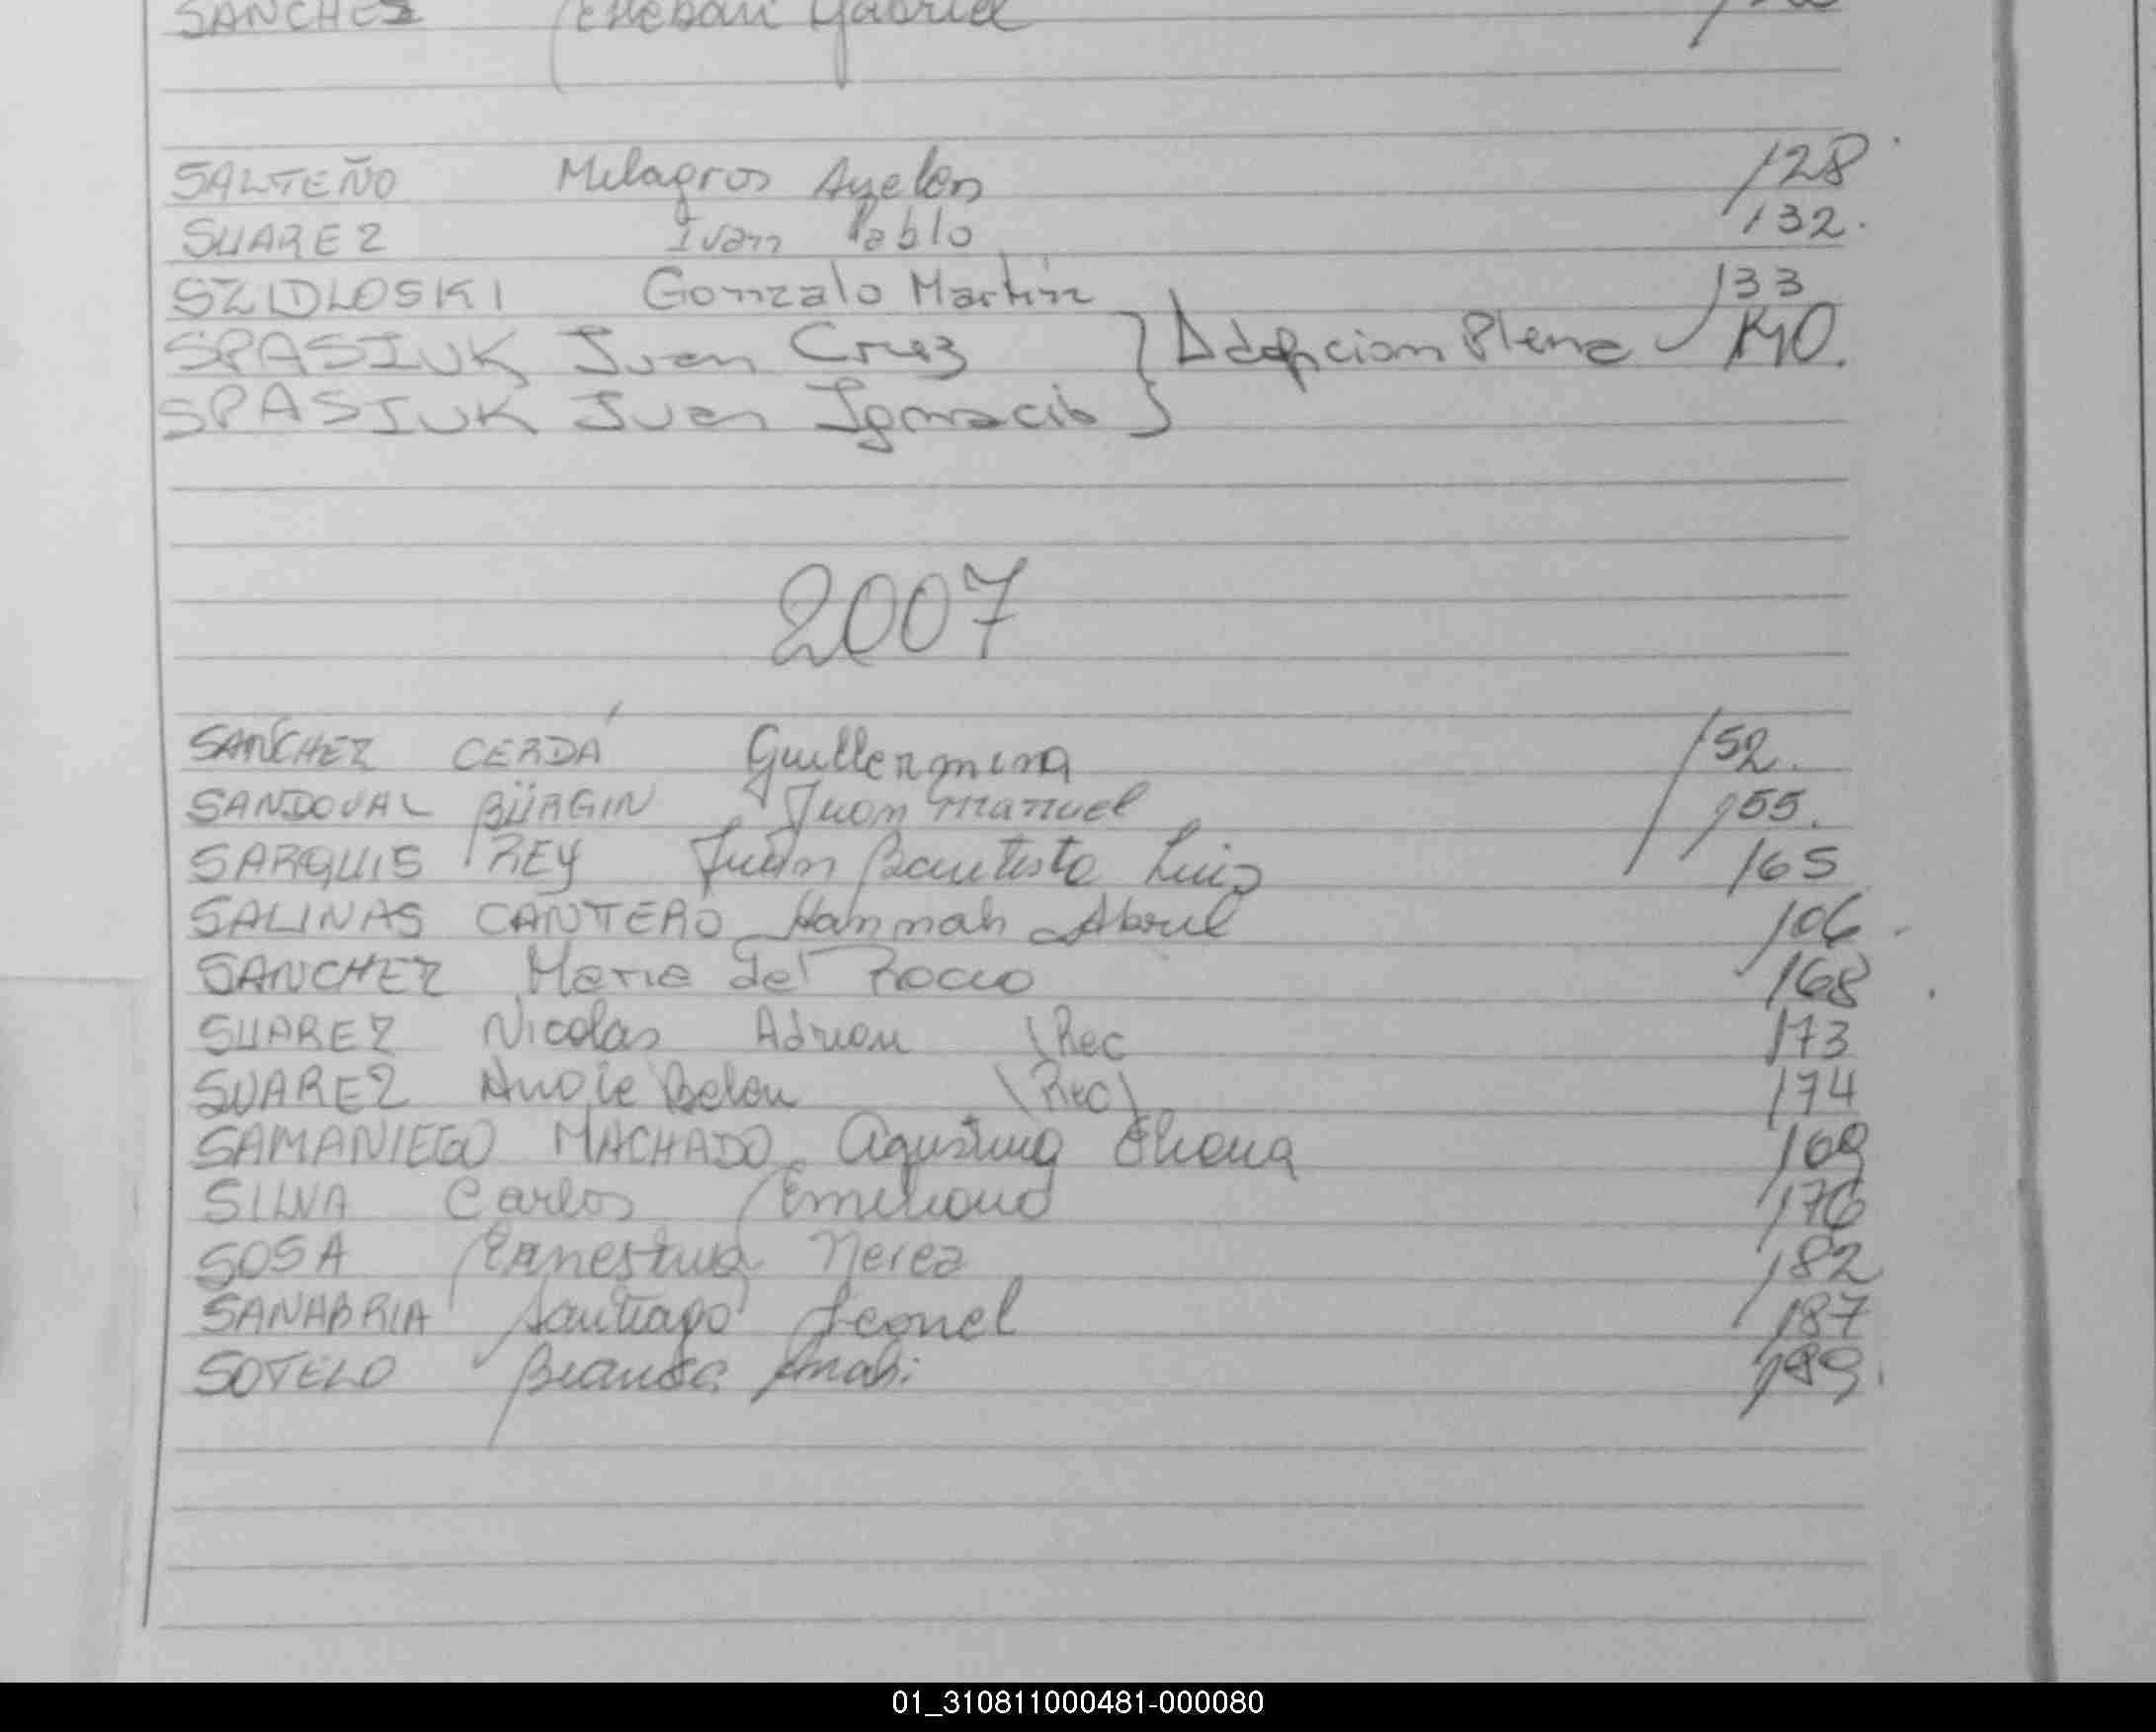 SANCHES Esteban Gabriel
SALTEÑO Milagros Ayelen 128
SUAREZ Ivan Pablo 132.
SZIDLOSKI Gonzalo Martin 133
SPASIUK Juan Cruz } Adopcion Plena 140.
SPASIUK Juan Ignacio }
2007
SANCHEZ CERDÁ Guillermina 152.
SANDOVAL BÜRGIN Juan Manuel 155.
SARQUIS REY Juan Bautista Luis 165
SALINAS CANTERO Hannah Abril 106
SANCHEZ Maria del Rocio 168
SUAREZ Nicolas Adrian (Rec 173
SUAREZ Belen (Rec) 174
SAMANIEGO MACHADO Agustina Eliana 169
SILVA Carlos Emiliano 176
SOSA Ernestina Nerea 182
SANABRIA Santiago Leonel 187
SOTELO Anahi 189.
01_310811000481-000080